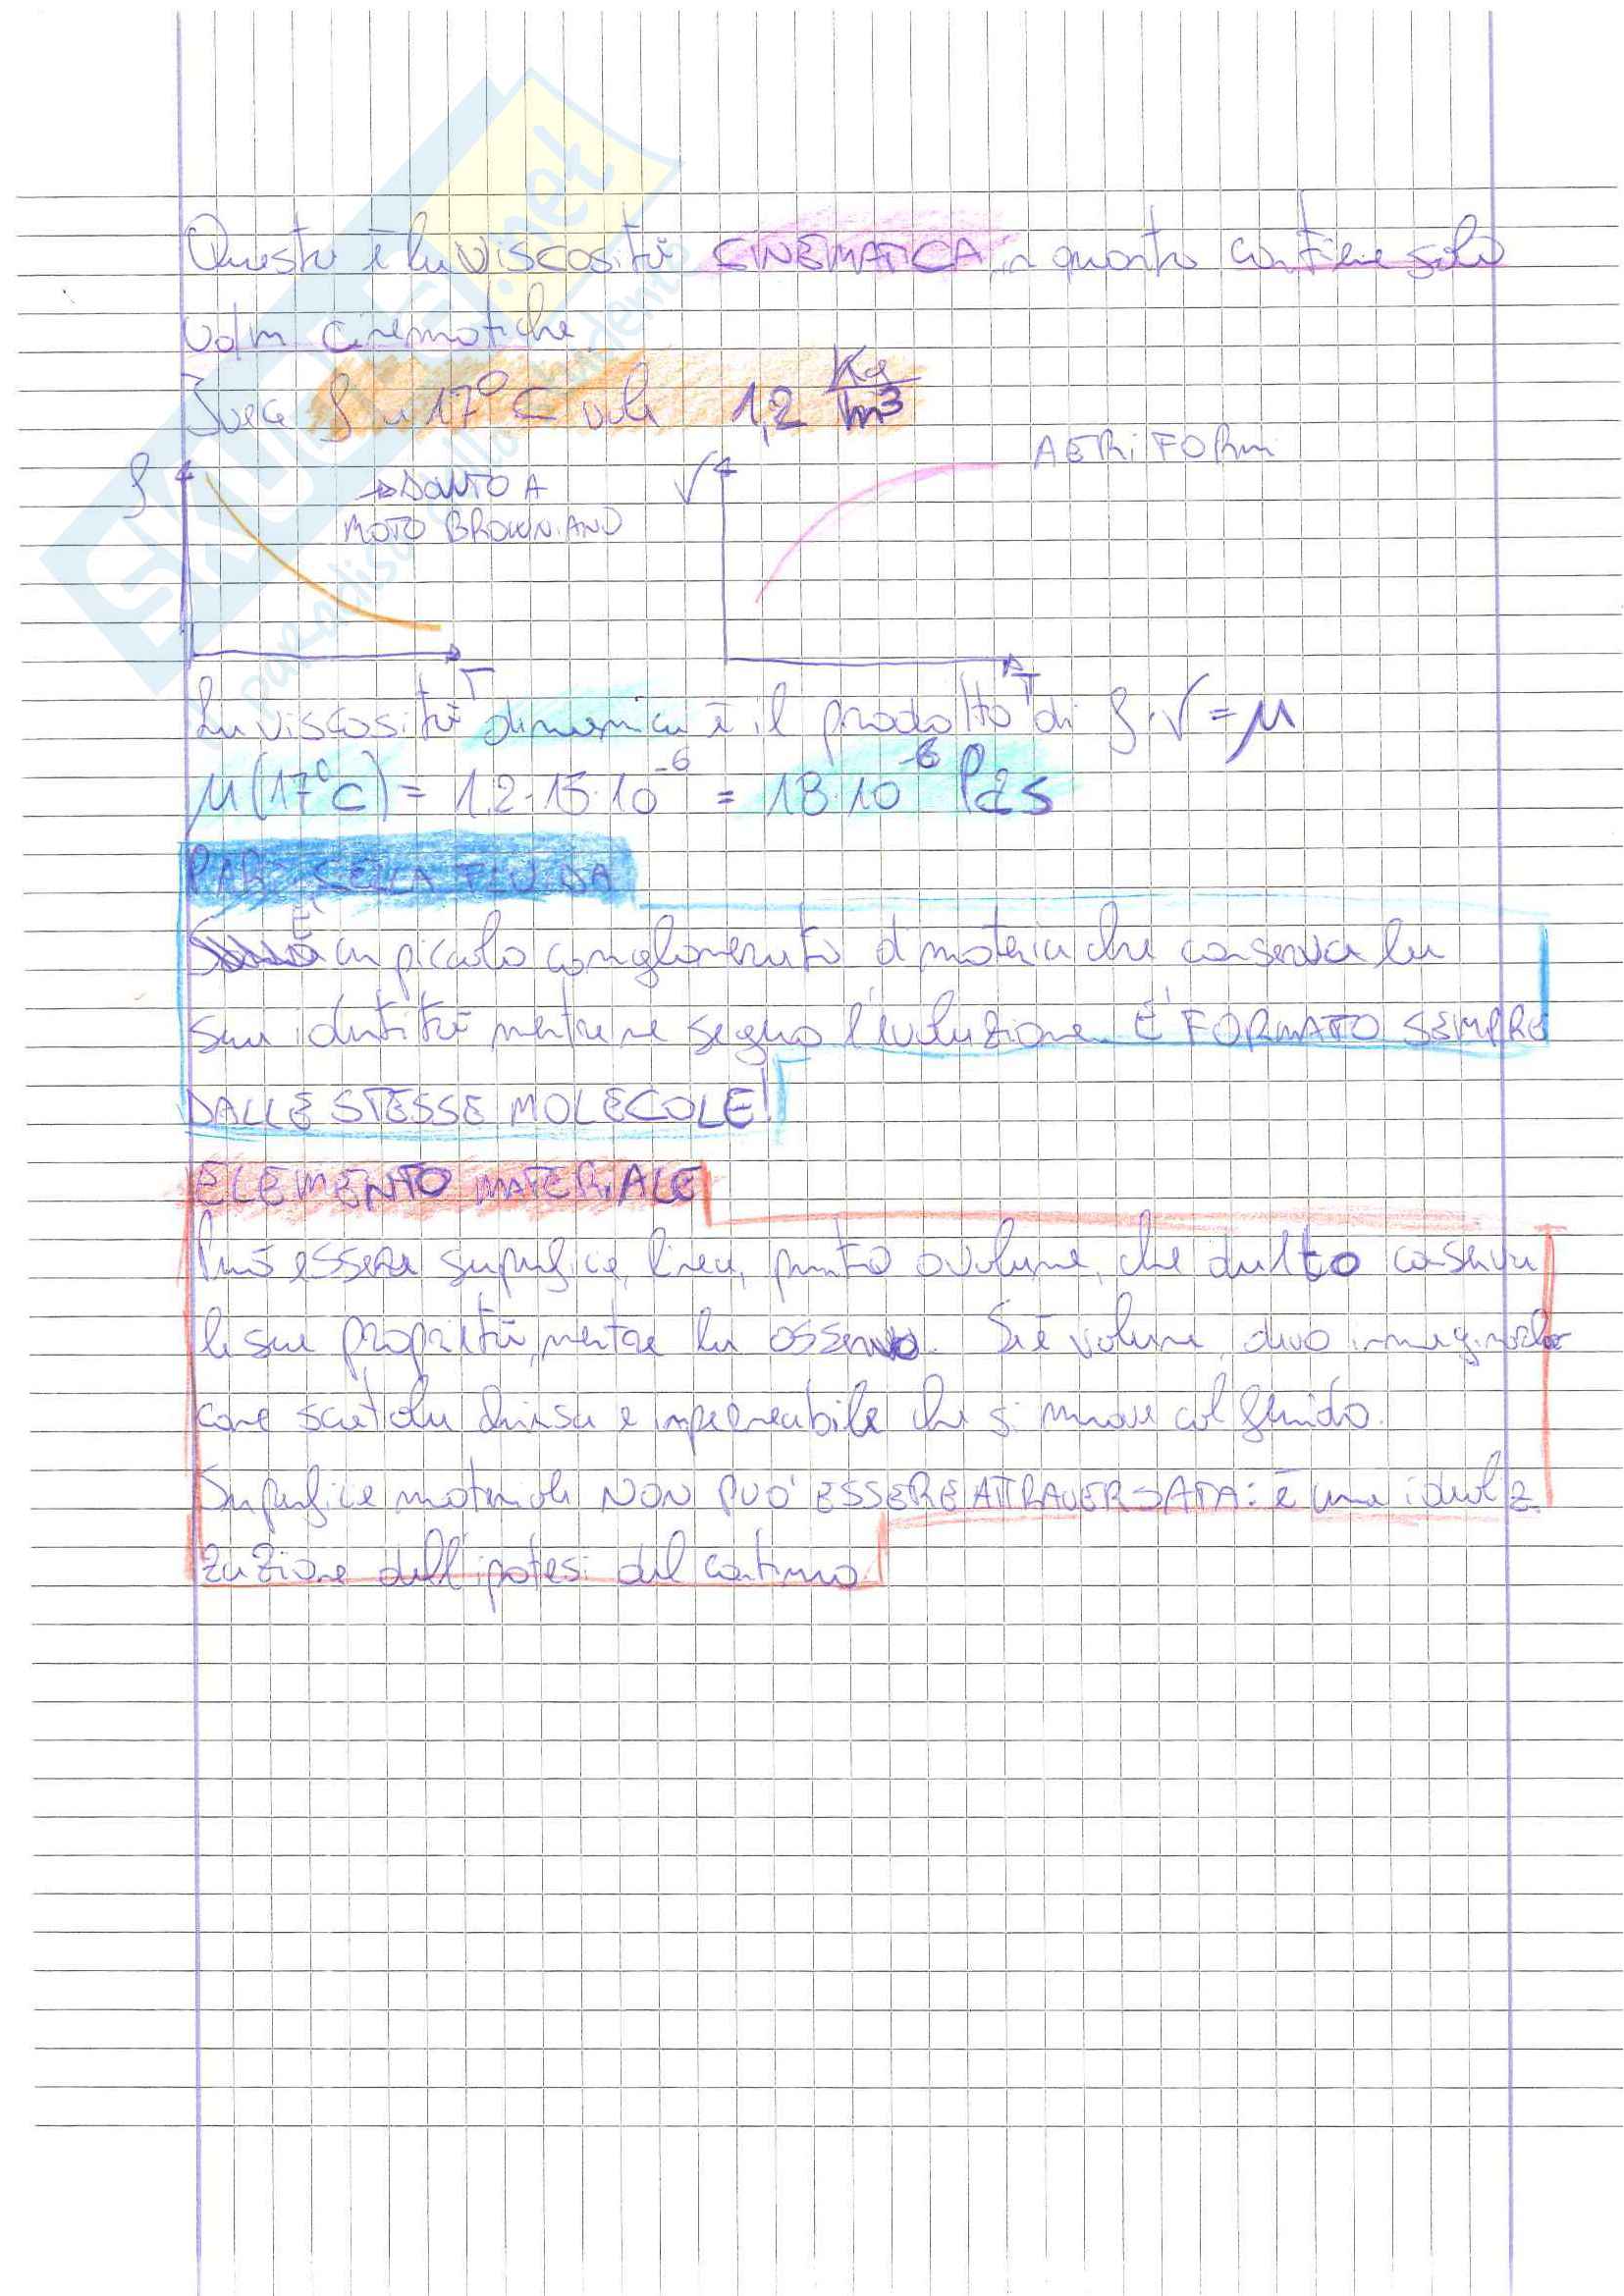 SKUOLA.net
paradiso dello studente
Questa è la VISCOSITÀ CINEMATICA, in quanto contiene solo
udm cinematiche.
Invece ρ a 17°C vale 1,2 Kg/m³
ρ → DOVUTO A ν AERIFORMI
MOTO BROWNIANO
T T
La viscosità dinamica è il prodotto di ρ·ν = μ
μ(17°C) = 1,2·15·10⁻⁶ = 18·10⁻⁶ Pa s
PARTICELLA FLUIDA
È un piccolo conglomerato di materia che conserva la
sua identità mentre ne seguo l'evoluzione. È FORMATO SEMPRE
DALLE STESSE MOLECOLE!
ELEMENTO MATERIALE
Può essere superficie, linea, punto o volume, che conserva
le sue proprietà, mentre la osservo. Se è volume, devo immaginarlo
come scatola chiusa e impermeabile che si muove col fluido.
Superficie materiale NON PUÒ ESSERE ATTRAVERSATA: è una idealiz
zazione dell'ipotesi del continuo.